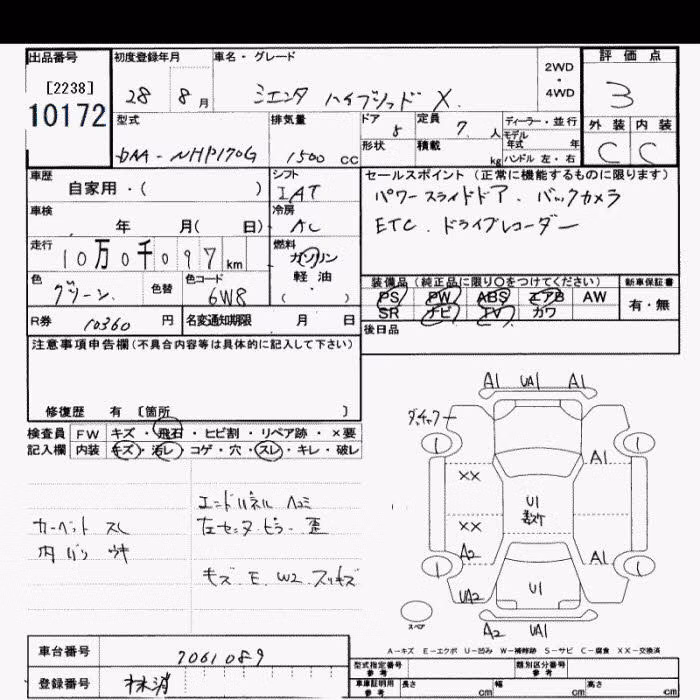 出品番号 初度登録年月 車名・グレード 2WD ・ 4WD 評価点
[2238] 10172
28 8月 シエンタ ハイブリッド X. 3
型式 排気量 ドア 5 定員 7. 人 ディーラー・並行 外装 内装
モデル年式 年
DAA-NHP170G 1500 CC 形状 積載 kg ハンドル 左・右 C C
車歴 シフト セールスポイント (正常に機能するものに限ります)
自家用・( ) IAT パワースライドドア. バックカメラ
車検 冷房 ETC. ドライブレコーダー
年 月( 日) AC
走行 燃料
10万0千097km ガソリン
軽・油
( ・ )
色 色替 色コード 装備品 (純正品に限り○をつけてください) 新車保証書
グリーン. 6W8 PS PW ABS エアB AW 有・無
SR ナビ TV カワ
R券 10360 円 名変通知期限 月 日 後日品
注意事項申告欄(不具合内容等は具体的に記入して下さい)
修復歴 有 〔箇所 〕
検査員 FW キズ・飛石・ヒビ割・リペア跡・×要
記入欄 内装 キズ・汚レ・コゲ・穴・スレ・キレ・破レ
A1 UA1 A1
A1
XX
U1
XX
A2 A1
UA2 U1
スペア
A2 UA1
エンドパネル ヘコミ
カーペット スレ 左センターピラー 歪
キズ. E. W2.
A-キズ E-エクボ U-凹み W-補修跡 S-サビ C-腐食 XX-交換済
車台番号 7061089
登録番号 抹消
型式指定番号 参考 類別区分番号 参考
車庫証明用 参考 長さ cm 幅 cm 高さ cm